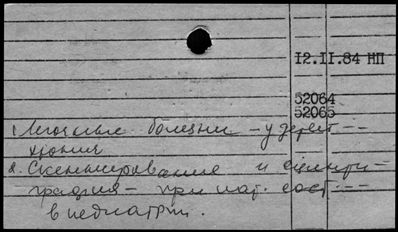 12.II.84 НП
52064
52065
1. Легочные болезни - у детей --
хрония
2. Сканирование и сцинти-
графия - при пат. сост. --
в педиатрии.